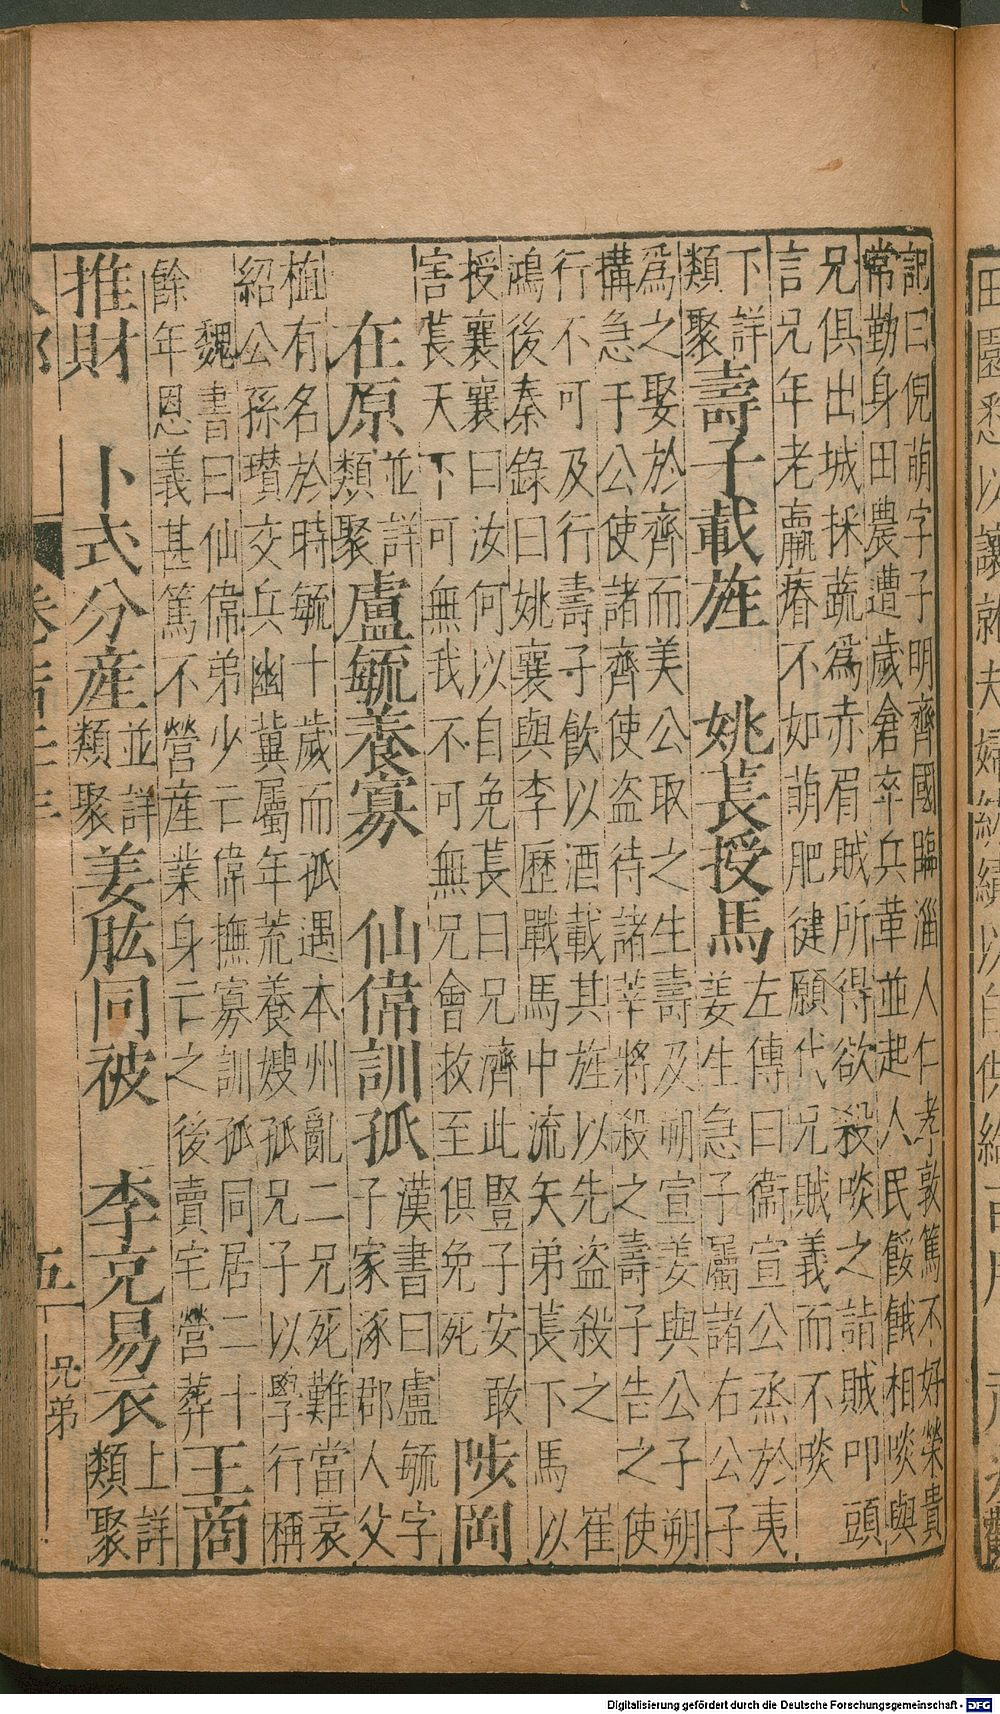 田園悉以讓就夫婦紡績以自供給
記曰倪萌字子明齊國臨淄人仁孝敦篤不好榮貴
常勤身田農遭歲倉卒兵革並起人民餒餓相啖與
兄俱出城採蔬為赤眉賊所得欲殺啖之請賊叩頭
言兄年老羸瘠不如萌肥健願代兄賊義而不啖
下詳
類聚
壽子載旌　姚萇授馬
左傳曰衛宣公烝於夷
姜生急子屬諸右公子
爲之娶於齊而美公取之生壽及朔宣姜與公子朔
構急于公使諸齊使盜待諸莘將殺之壽子告之使
行不可及行壽子飲以酒載其旌以先盜殺之　崔
鴻後秦錄曰姚襄與李歷戰馬中流矢弟萇下馬以
授襄襄曰汝何以自免萇曰兄濟此豎子安敢
害萇天下可無我不可無兄會救至俱免死
陟岡
在原
並詳
類聚
盧毓養寡　仙偉訓孤
漢書曰盧毓字
子家涿郡人父
植有名於時毓十歲而孤遇本州亂二兄死難當袁
紹公孫瓚交兵幽冀屬年荒養嫂孤兄子以學行稱
魏書曰仙偉弟少亡偉撫寡訓孤同居二十
餘年恩義甚篤不營産業身亡之後賣宅營葬
王商
推財　卜式分産
並詳
類聚
姜肱同被　李克易衣
上詳
類聚
五
兄弟
Digitalisierung gefördert durch die Deutsche Forschungsgemeinschaft - DFG